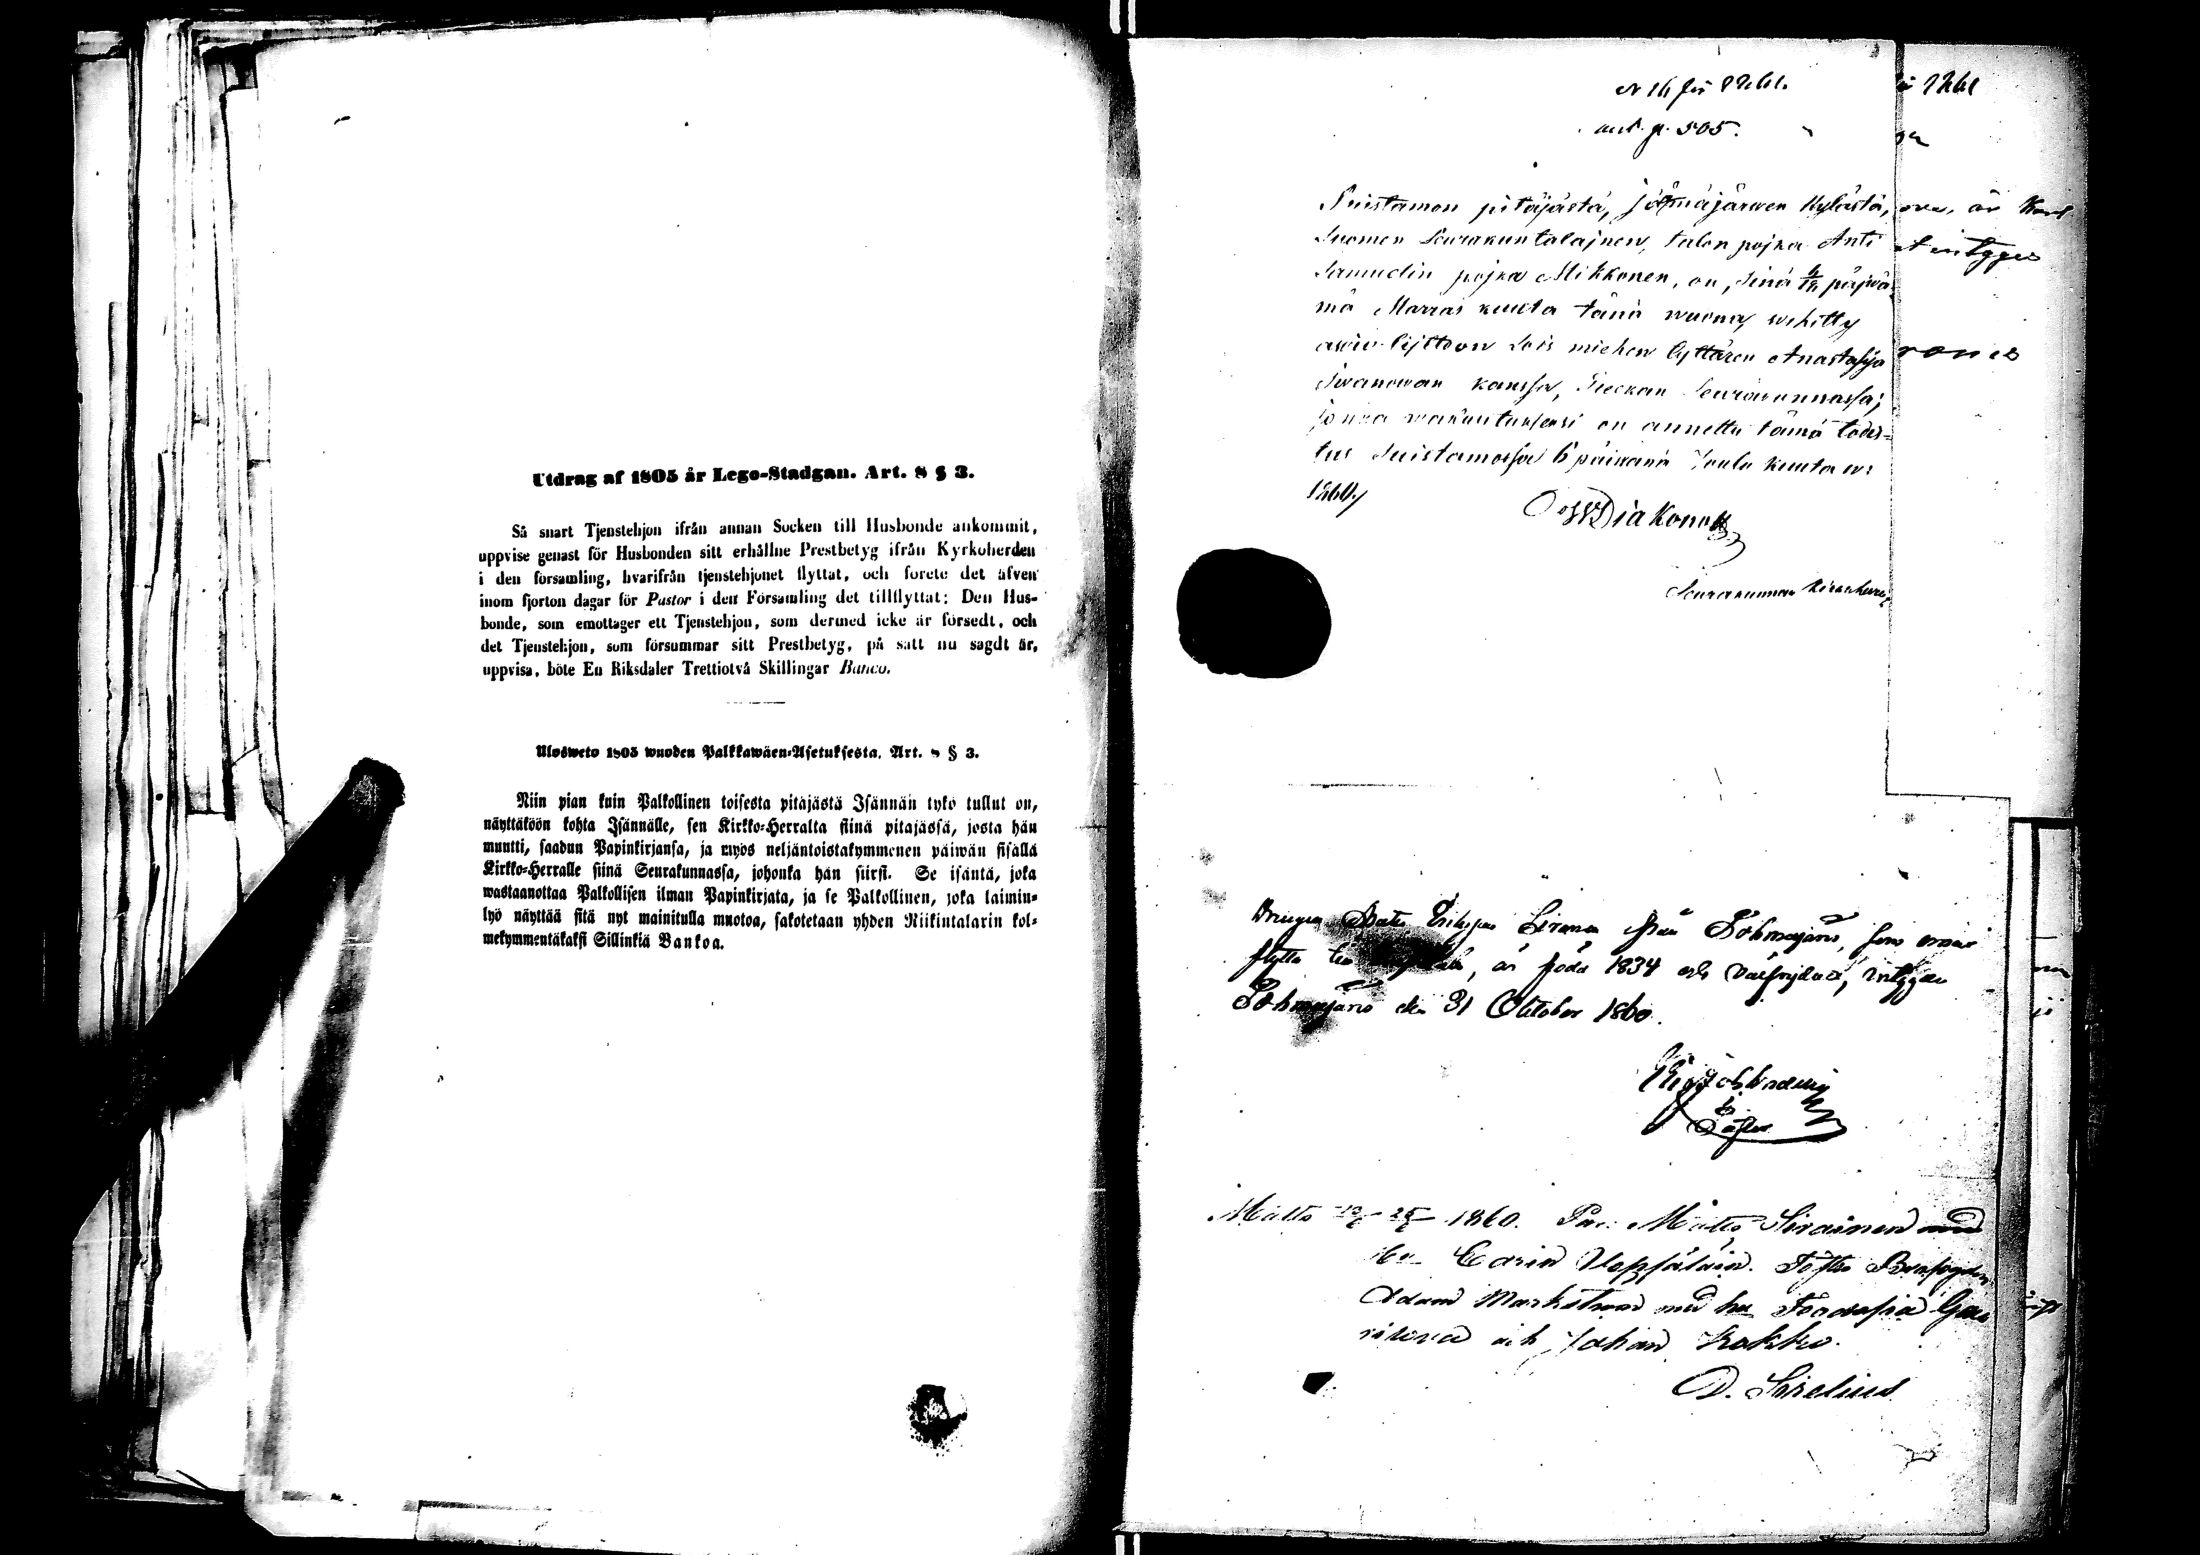 Utdrag af 1805 år Lego-Stadgan. Art. 8 § 3.
Så snart Tjenstehjon ifrån annan Socken till Husbonde ankommit,
uppvise genast för Husbonden sitt erhållne Prestbetyg ifrån Kyrkoherden
i den församling, hvarifrån tjenstehjonet flyttat, och forete det äfven
inom fjorton dagar för Pastor i den Församling det tillflyttat: Den Hus-
bonde, som emottager ett Tjenstehjon, som dermed icke är försedt, och
det Tjenstehjon, som försummar sitt Prestbetyg, på sätt nu sagdt är,
uppvisa, böte En Riksdaler Trettiotvå Skillingar Banco.
Ulosweto 1805 wuoden Palkkawäen-Asetuksesta. Art. 8 § 3.
Niin pian kuin Palkollinen toisesta pitäjästä Isännän tykö tullut on,
näyttäköön kohta Isännälle, sen Kirkko-Herralta siinä pitäjässä, josta hän
muutti, saadun Papinkirjansa, ja myös neljäntoistakymmenen päiwän sisällä
Kirkko-Herralle siinä Seurakunnassa, johonka hän siirsi. Se isäntä, joka
wastaanottaa Palkollisen ilman Papinkirjata, ja se Palkollinen, joka laimin-
lyö näyttää sitä nyt mainitulla muotoa, sakotetaan yhden Riikintalarin kol-
mekymmentäkaksi Sillinkiä Bankoa.
N 16 för 1861.
ant. p. 505.
Suistamon pitäjästä, Kylästä,
Suomen Seurakuntalajnen, talon pojka Anti
Samuelin pojka Mikkonen, on, Sinä päjwä-
nä Marras kuuta tänä wuona, wihitty
awio-lijttoon Lois miehen tyttären Anastasija
Iwanowan kanssa, Kreckan Seurakunnassa;
jonka wakuutuxexi on annettu tämä todis-
tus Suistamossa 6 päiwänä Joulu kuuta w:
1860,
Diakonoff
Seurakunnan Kirkkoherra
1861
är
intyges
Drängen Matts Sirainen från Tohmajärvi, som ernar
flytta till är född 1834 och välfrejdad, intygar
Tohmajärvi den 31 Oktober 1860.
Matts 1860. Matts Sirainen med
hu Carin Uopsälain.
Adam med hu
och Johan Kokko.
D. Sirelius